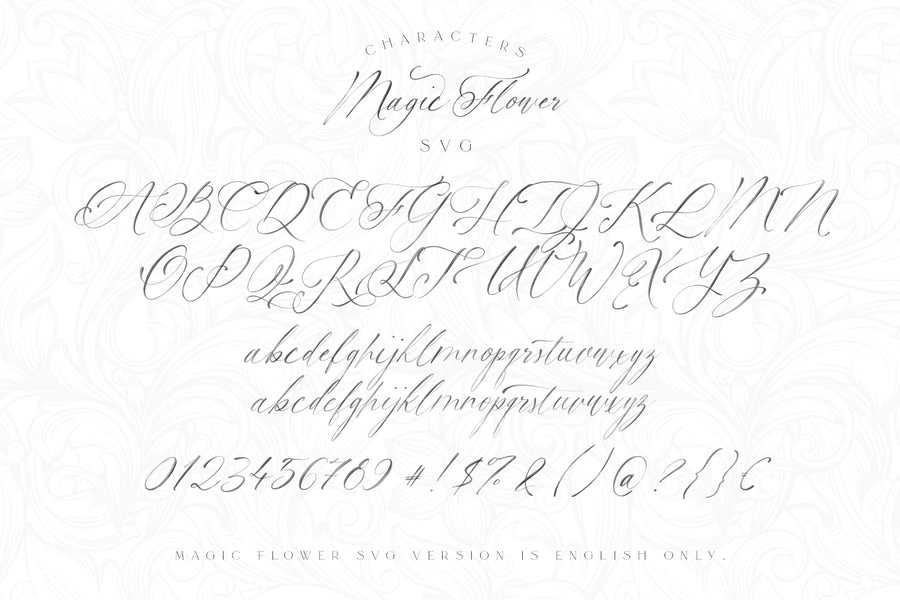 CHARACTERS
Magic Flower
SVG
ABCDEFGHIJKLMN
OPQRSTUVWXYZ
abcdefghijklmnopqrstuvwxyz
abcdefghijklmnopqrstuvwxyz
0123456789 #!$%&()@?{}€
MAGIC FLOWER SVG VERSION IS ENGLISH ONLY.